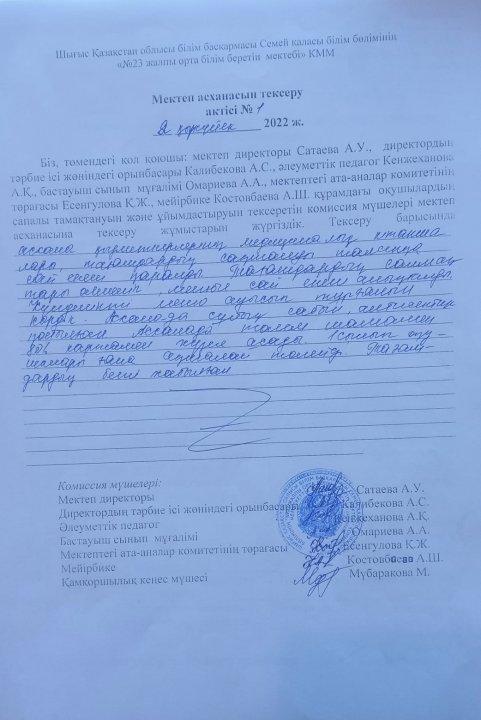 Шығыс Қазақстан облысы білім басқармасы Семей қаласы білім бөлімінің
«№23 жалпы орта білім беретін мектебі» КММ
Мектеп асханасын тексеру
актісі № 1
2 қыркүйек 2022 ж.
Біз, төмендегі қол қоюшы: мектеп директоры Сатаева А.У., директордың
тәрбие ісі жөніндегі орынбасары Калибекова А.С., әлеуметтік педагог Кенжеханова
А.Қ., бастауыш сынып мұғалімі Омариева А.А., мектептегі ата-аналар комитетінің
төрағасы Есенгулова Қ.Ж., мейірбике Костовбаева А.Ш. құрамдағы оқушылардың
сапалы тамақтануын және ұйымдастыруын тексеретін комиссия мүшелері мектеп
асханасына тексеру жұмыстарын жүргіздік. Тексеру барысында
асхана қызметкерлерінің медициналық кітапша
лары, тағамдардың сақталуы талапқа
сай екені қаралды. Тағамдардың салмақ
тары менюге сай екені анықталды.
Күнделікті меню ауысып тұрғанын
көрдік. Асханада сұйық сабын,
қойылған. Асханада
жүзеге асады. 1сынып оқу-
шылары тегін Таған-
дардың бәсі қойылған
Комиссия мүшелері:
Мектеп директоры Сатаева А.У.
Директордың тәрбие ісі жөніндегі орынбасары Калибекова А.С.
Әлеуметтік педагог Кенжеханова А.Қ.
Бастауыш сынып мұғалімі Омариева А.А.
Мектептегі ата-аналар комитетінің төрағасы Есенгулова Қ.Ж.
Мейірбике Костовбаева А.Ш.
Қамқоршылық кеңес мүшесі Мубаракова М.